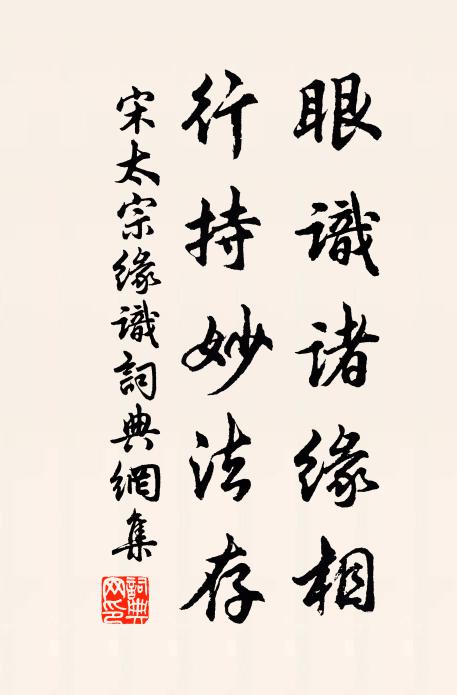 眼識诸缘相
行持妙法存
宋太宗缘識詞典網集
詞典网印